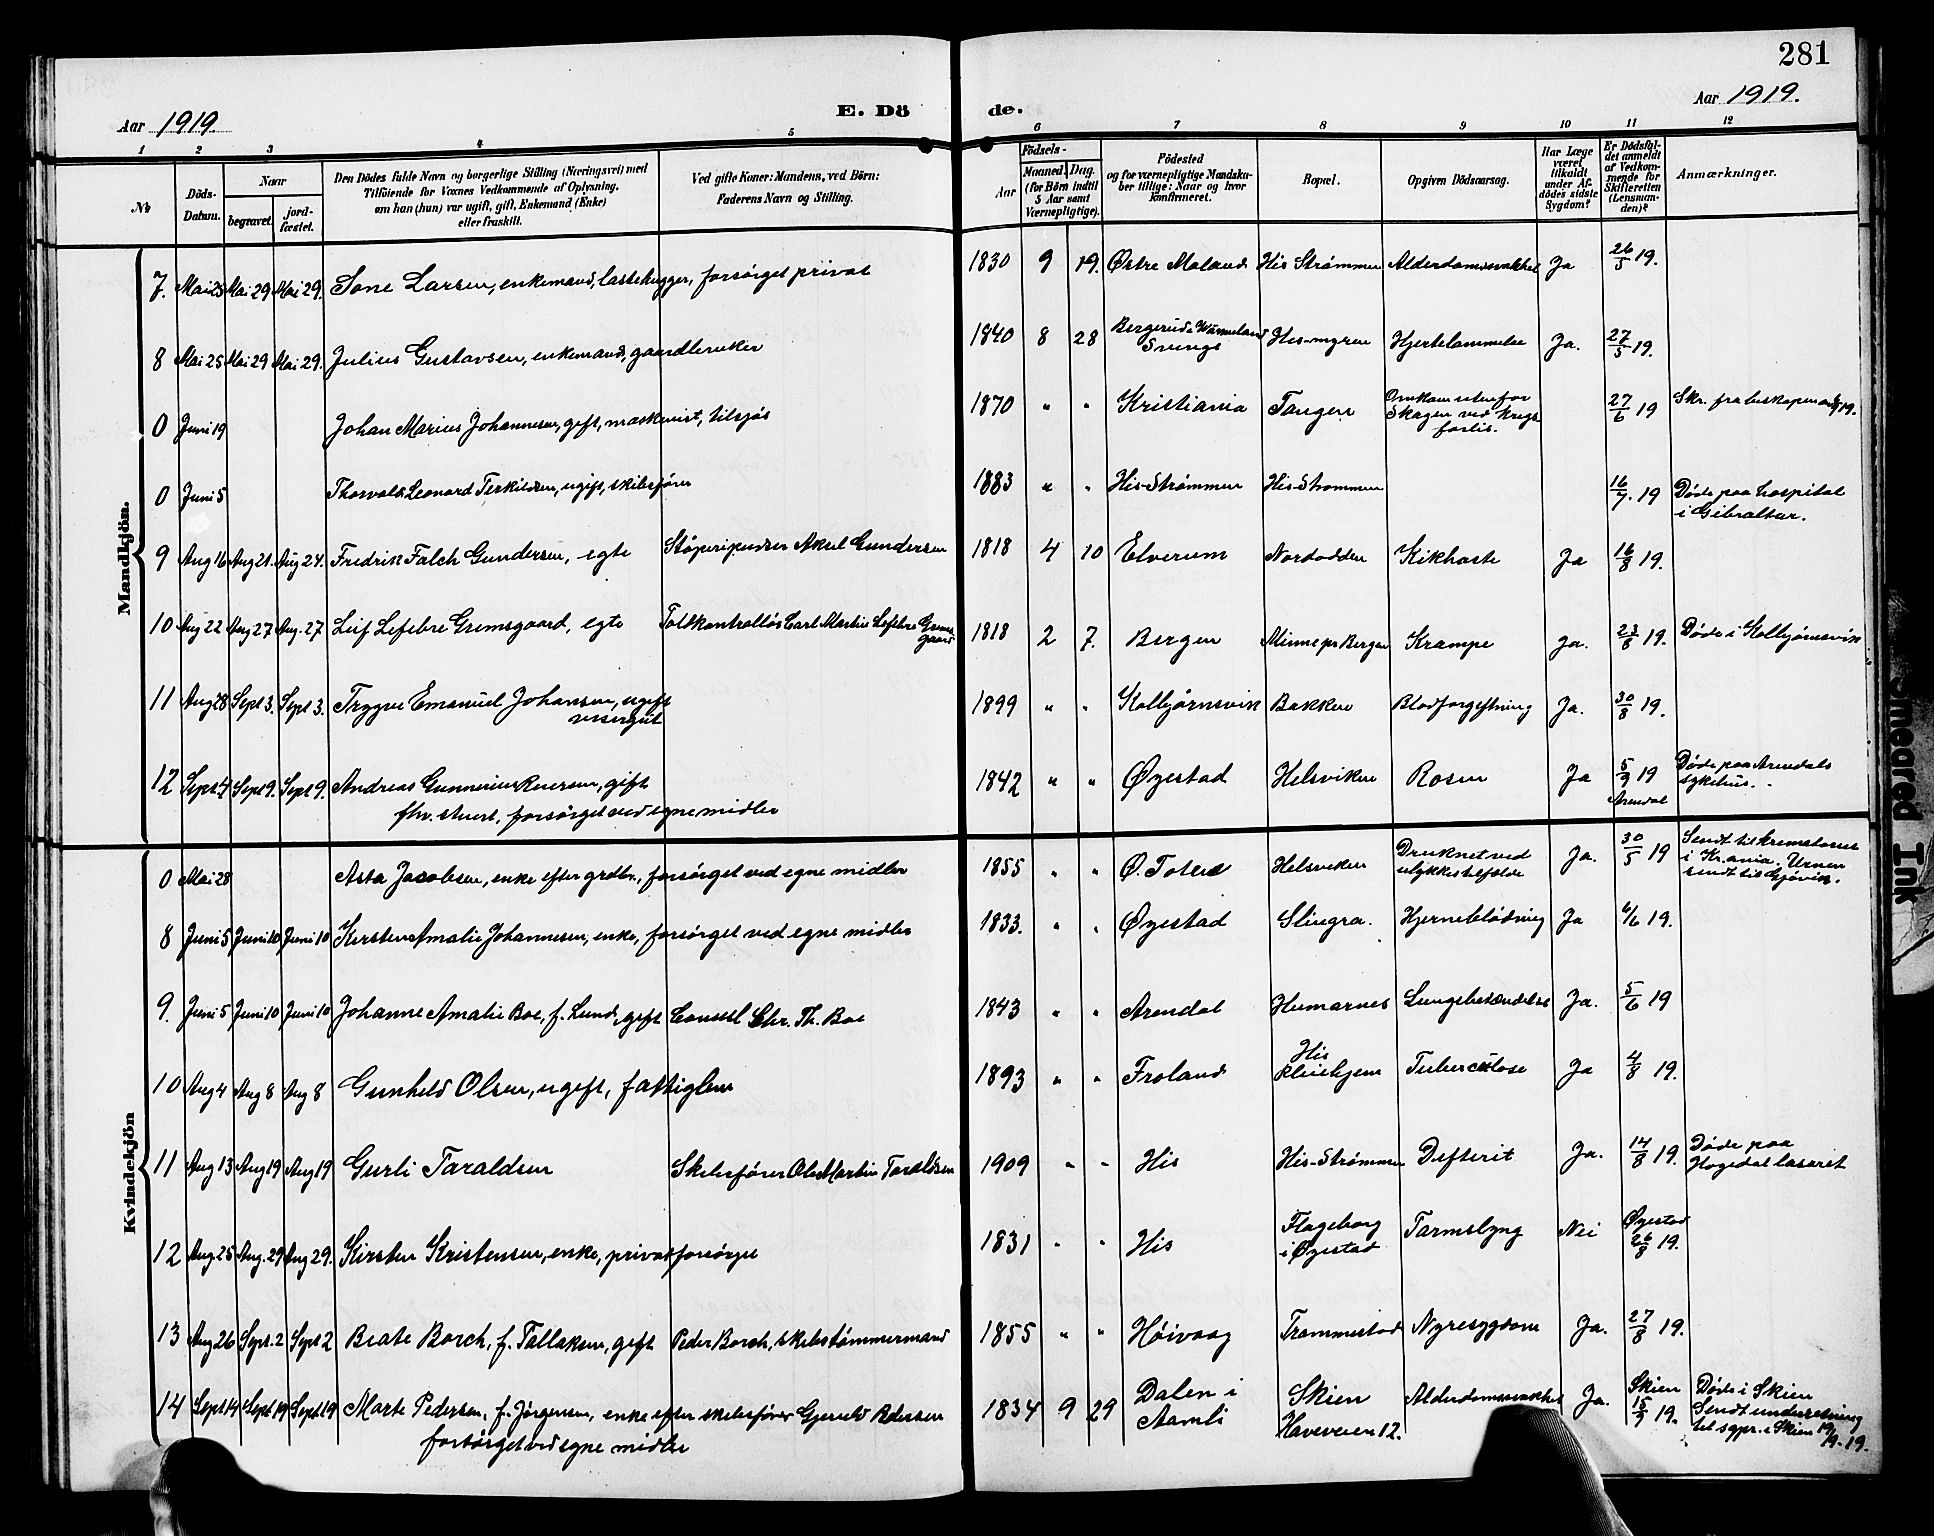 281
Aar 1919.
E. Dö
de.
Aar 1919.
1 2 3 4 5
6 7 8 9 10 11 12
No
Döds-
Datum.
Naar
begravet.
jord-
fæstet.
Den Dödes fulde Navn og borgerlige Stilling (Næringsvei) med
Tilföiende for Voxnes Vedkommende af Oplysning,
om han (hun) var ugift, gift, Enkemand (Enke)
eller fraskilt.
Ved gifte Koner: Mandens, ved Börn:
Faderens Navn og Stilling.
Födsels-
Aar
Maaned
Dag.
(for Börn indtil
5 Aar samt
Værnepligtige).
Födested
og for værnepligtige Mandska-
ber tillige: Naar og hvor
konfirmeret.
Bopæl.
Opgiven Dödsaarsag.
Har Læge
været
tilkaldt
under Af-
dödes sidste
Sygdom?
Er Dödsfal-
det anmeldt
af Vedkom-
mende for
Skifteretten
(Lensman-
den)?
Anmærkninger.
Mandkjön.
7. Mai 25 Mai 29 Mai 29. Larsen, enkemand, lastehugger, forsørget privat 1830 9 19. Østre Moland His Strømmen Alderdomssvakhet Ja 26/5 19.
8 Mai 25 Mai 29 Mai 29. Julius Gustavsen, enkemand, gaardbruker 1840 8 28 Wärmeland His-myren Hjertelammelse Ja. 27/5 19.
0 Juni 19 Johan Marius Johannesen, gift, maskinist, tilsjøs 1870 " " Kristiania Tangen Omkom utenfor
Skagen ved krigs-
forlis. 27/6 19 Skr. fra biskopen
0 Juni 5 Thorvald Leonard Terkildsen, ugift, skibsfører 1883 " " His-Strømmen His-Strømmen 16/7. 19 Døde paa hospital
i Gibraltar.
9 Aug 16 Aug 21. Aug 24. Fredrik Falch Gundersen, egte Aksel Gundersen 1818 4 10 Elverum Nordodden Kikhoste Ja 16/8 19.
10 Aug 22 Aug 27 Aug. 27 Leif Lefebre Grimsgaard, egte Toldkontrollør Carl Martin Lefebre Grims
gaard 1818 2 7. Bergen Minne pr Bergen Krampe Ja. 23/8 19. Døde i Kolbjørnsvik
11 Aug 28 Sept 3. Sept 3. Trygve Emanuel Johansen, ugift
visergut 1899 " " Kolbjørnsvik Bakken Blodforgiftning Ja. 30/8 19.
12 Sept. 4 Sept 9. Sept 9. Andreas Gunnerius Reiersen, gift
fhv. stuert, forsørget ved egne midler 1842 " " Øyestad Helsviken Rosen Ja 5/9 19
Arendal Døde paa Arendals
sykehus.
Kvindekjön
0 Mai 28 Asta Jacobsen, enke efter grdbr., forsørget ved egne midler 1855 " " Ø. Toten Helsviken Druknet ved
ulykkestilfelde Ja. 30/5 19 Sendt til krematoriet
i Kr.ania. Urnen
sendt til Gjøvik.
8 Juni 5 Juni 10 Juni 10 Kirsten Amalie Johannesen, enke, forsørget ved egne midler 1833. " " Øyestad Slingra. Hjerneblødning Ja 6/6 19.
9. Juni 5 Juni 10 Juni 10 Johanne Amalie Boe, f. Lund, gift Consul Chr. Th. Boe 1843 " " Arendal Humarnes Lungebetændelse Ja. 5/6 19
10 Aug 4 Aug 8 Aug 8 Gunhild Olsen, ugift, fattiglem 1893 " " Froland His
pleiehjem Tuberculose Ja 4/8 19.
11 Aug 13 Aug 19 Aug 19 Gurli Taraldsen Skibsfører Ole Martin Taraldsen 1909 " " His His-Strømmen Difterit Ja. 14/8 19. Døde paa
Hogedal lasaret
12 Aug 25 Aug. 29 Aug 29. Kirsten Kristensen, enke, privat forsørget 1831 " " His Flageborg
i Øyestad Tarmslyng Nei Øyestad
26/8 19.
13 Aug 26 Sept. 2 Sept 2 Beate Borch, f. Tallaksen, gift Peder Borch, skibstømmermand 1855 " " Høivaag Trommestad Nyresygdom Ja. 27/8 19.
14 Sept 14 Sept 19 Sept 19 Marte Pedersen, f. Jørgensen, enke efter skibsfører Gjeruld Pedersen
forsørget ved egne midler 1834 9 29 Dalen i
Aamli Skien
Haveveien 12. Alderdomssvakhet Ja. Skien
15/9 19. Døde i Skien
Sendt underretning
til sgpr. i Skien 19/9-19.
Smeared Ink